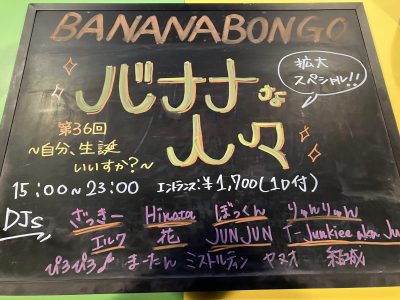 BANANABONGO
バナナな
人々
拡大
スペシャル!!
第36回
~自分、生誕
いいすか?~
15:00~23:00 エントランス:¥1,700(1D付)
DJs ざっきー Hinata ぼっくん りゅんりゅん
エルク 花 JUNJUN T-Junkiee aka Ju
ぴろぴろ♪ まーたん ミストルティン ヤマオ 結城